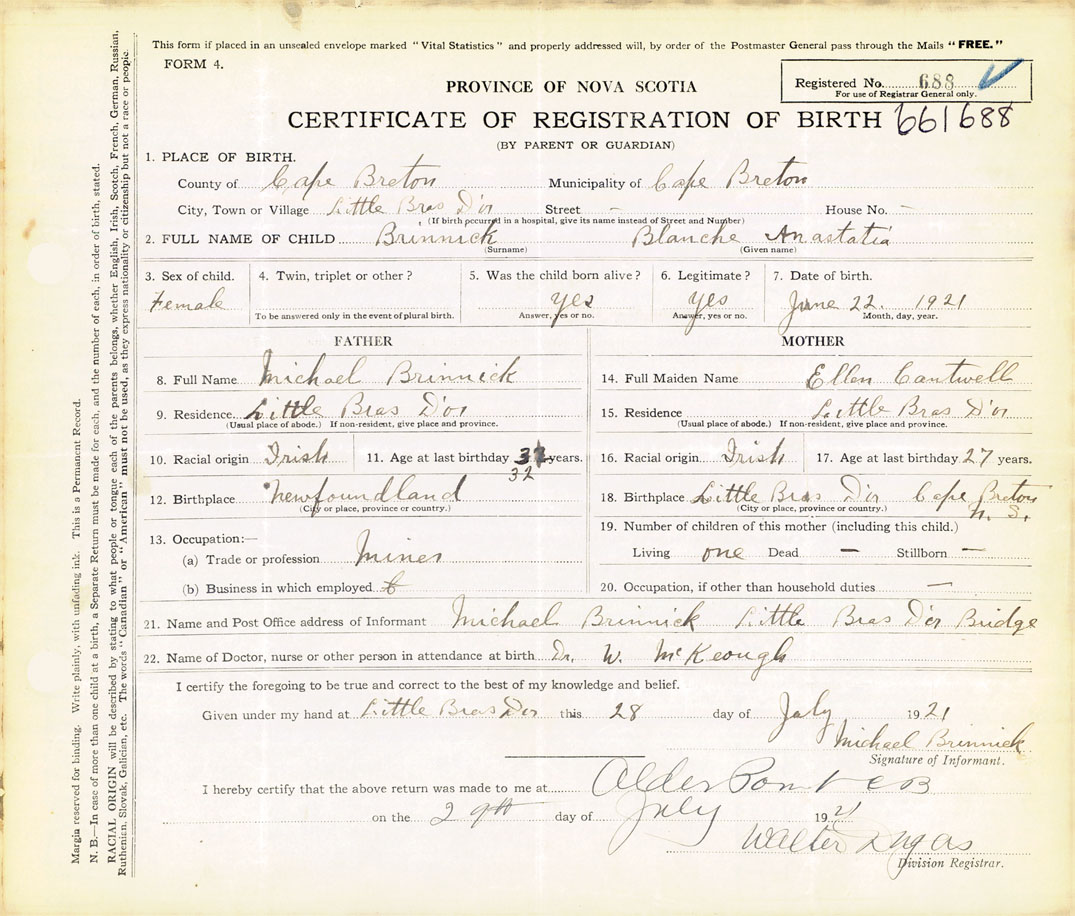 This form if placed in an unsealed envelope marked "Vital Statistics" and properly addressed will, by order of the Postmaster General pass through the Mails "FREE."
FORM 4.
Registered No. 688
For use of Registrar General only.
PROVINCE OF NOVA SCOTIA
CERTIFICATE OF REGISTRATION OF BIRTH 661688
(BY PARENT OR GUARDIAN)
1. PLACE OF BIRTH.
County of Cape Breton Municipality of Cape Breton
City, Town or Village Little Bras D'or Street - House No. -
(If birth occurred in a hospital, give its name instead of Street and Number)
2. FULL NAME OF CHILD Brinnick Blanche Anastatia
(Surname) (Given name)
3. Sex of child. 4. Twin, triplet or other? 5. Was the child born alive? 6. Legitimate? 7. Date of birth.
Female yes yes June 22. 1921
To be answered only in the event of plural birth. Answer, yes or no. Answer, yes or no. Month, day, year.
FATHER MOTHER
8. Full Name Michael Brinnick 14. Full Maiden Name Ellen Cantwell
9. Residence Little Bras D'or 15. Residence Little Bras D'or
(Usual place of abode.) If non-resident, give place and province. (Usual place of abode.) If non-resident, give place and province.
10. Racial origin Irish 11. Age at last birthday years. 16. Racial origin Irish 17. Age at last birthday 27 years.
32
12. Birthplace Newfoundland 18. Birthplace Little Bras D'or Cape Breton
(City or place, province or country.) (City or place, province or country.) N. S.
19. Number of children of this mother (including this child.)
13. Occupation:—
(a) Trade or profession Miner Living one Dead — Stillborn —
(b) Business in which employed 20. Occupation, if other than household duties —
21. Name and Post Office address of Informant Michael Brinnick Little Bras D'or Bridge
22. Name of Doctor, nurse or other person in attendance at birth Dr. W. McKeough
I certify the foregoing to be true and correct to the best of my knowledge and belief.
Given under my hand at Little Bras Dor this 28 day of July 1921
Michael Brinnick
Signature of Informant.
I hereby certify that the above return was made to me at Alder Point C B
on the 29th day of July 1921
Walter Dugas
Division Registrar.
Margin reserved for binding. Write plainly, with unfading ink. This is a Permanent Record.
N. B.—In case of more than one child at a birth, a Separate Return must be made for each, and the number of each, in order of birth, stated.
RACIAL ORIGIN will be described by stating to what people or tongue each of the parents belongs, whether English, Irish, Scotch, French, German, Russian,
Ruthenian, Slovak, Galician, etc. The words "Canadian" or "American" must not be used, as they express nationality or citizenship but not a race or people.